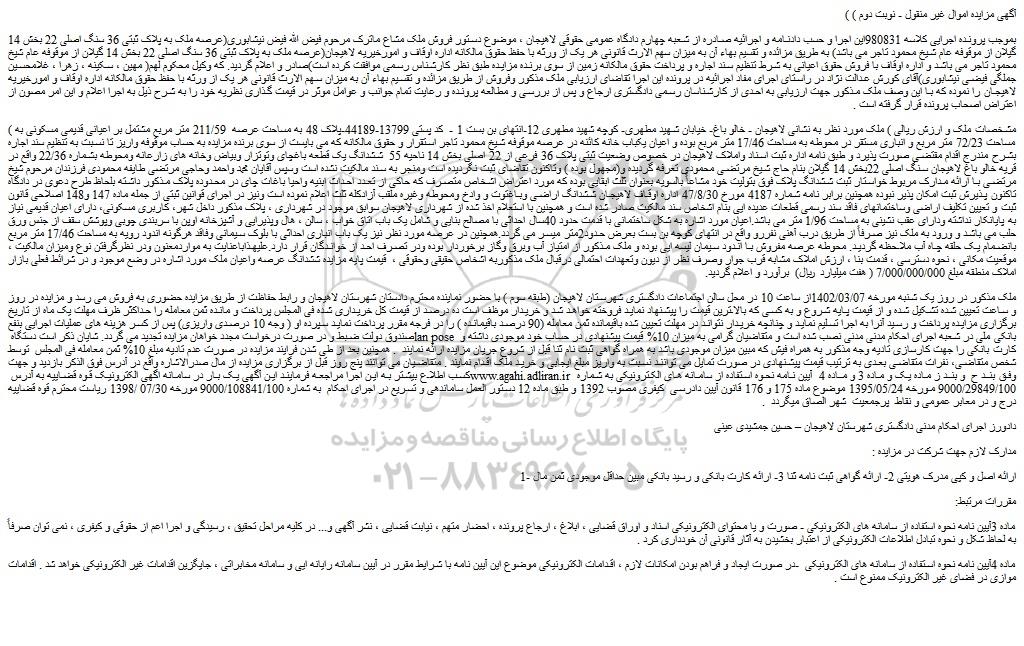 آگهی مزایده اموال غیر منقول - نوبت دوم ) )
بموجب پرونده اجرایی کلاسه 980831این اجرا و حسب دادنامه و اجرائیه صادره از شعبه چهارم دادگاه عمومی حقوقی لاهیجان ، موضوع دستور فروش ملک مشاع ماترک مرحوم فیض الله فیض نیشابوری(عرصه ملک به پلاک ثبتی 36 سنگ اصلی 22 بخش 14
گیلان از موقوفه عام شیخ محمود تاجر می باشد) به طریق مزائده و تقسیم بهاء آن به میزان سهم الارث قانونی هر یک از ورثه با حفظ حقوق مالکانه اداره اوقاف و امورخیریه لاهیجان(عرصه ملک به پلاک ثبتی 36 سنگ اصلی 22 بخش 14 گیلان از موقوفه عام شیخ
محمود تاجر می باشد و اداره اوقاف با فروش حقوق اعیانی به شرط تنظیم سند اجاره و پرداخت حقوق مالکانه زمین از سوی برنده مزایده طبق نظر کارشناس رسمی موافقت کرده است)صادر و اعلام گردید. که وکیل محکوم لهم( مهین ، سکینه ، زهرا ، غلامحسین
جملگی فیضی نیشابوری)آقای کورش عدالت نژاد در راستای اجرای مفاد اجرائیه در پرونده این اجرا تقاضای ارزیابی ملک مذکور وفروش از طریق مزائده و تقسیم بهاء آن به میزان سهم الارث قانونی هر یک از ورثه با حفظ حقوق مالکانه اداره اوقاف و امورخیریه
لاهیجان را نموده که با این وصف ملک مذکور جهت ارزیابی به احدی از کارشناسان رسمی دادگستری ارجاع و پس از بررسی و مطالعه پرونده و رعایت تمام جوانب و عوامل موثر در قیمت گذاری نظریه خود را به شرح ذیل به اجرا اعلام و این امر مصون از
اعتراض اصحاب پرونده قرار گرفته است .
مشخصات ملک و ارزش ریالی ) ملک مورد نظر به نشانی لاهیجان - خالو باغ- خیابان شهید مطهری- کوچه شهید مطهری 12-انتهای بن بست 1 - کد پستی 13799-44189-پلاک 48 به مساحت عرصه 211/59 متر مربع مشتمل بر اعیانی قدیمی مسکونی به )
مساحت 72/23 متر مربع و انباری مستقر در محوطه به مساحت 17/46 متر مربع بوده و اعیان یکباب خانه کائنه در عرصه موقوفه شیخ محمود تاجر استقرار و حقوق مالکانه که می بایست از سوی برنده مزایده به حساب موقوفه واریز تا نسبت به تنظیم سند اجاره
بشرح مندرج اقدام مقتضی صورت پذیرد و طبق نامه اداره ثبت اسناد واملاک لاهیجان در خصوص وضعیت ثبتی پلاک 36 فرعی از 22 اصلی بخش 14 ناحیه 55 ششدانگ یک قطعه باغچای وتوتزار وبیاض وخانه های زارعانه ومحوطه بشماره 22/36 واقع در
قریه خالو باغ لاهیجان سنگ اصلی 22بخش 14 گیلان بنام حاج شیخ مرتضی محمودی تعرفه گردیده و(مجهول بوده ) وتاکنون تقاضای ثبت نگردیده است ومنجر به سند مالکیت نشده است وسپس آقایان محمد واحمد وحاجی مرتضی طایفه محمودی فرزندان مرحوم شیخ
مرتضی با آرائه مدارک مربوط خواستار ثبت ششدانگ پلاک فوق بتولیت خود مشاعا بالسویه بعنوان ثلث ابقایی بوده که مورد اعتراض اشخاص متصرف که حاکی از تعدد احداث ابنیه واحیا باغات چای در محدوده پلاک مذکور داشته بلحاظ طرح دعوی در دادگاه
تاکنون پذیرش ثبت امکان پذیر نبوده همچنین برابر نامه شماره 4187 مورخ 47/8/30 اداره اوقاف لاهیجان ششدانگ اراضی وباغتوت و وادخ ومحوطه وغیره ملقب آزادکله ثلث اعلام نموده است ونیز در اجرای قوانین ثبتی از جمله ماده 147 و148 اصلاحی قانون
ثبت و تعیین تکلیف اراضی وساختمانهای فاقد سند رسمی قطعات عدیده ایی بنام اشخاص سند مالکیت صادر شده است ، و همچنین با استعلام اخذ شده از شهرداری لاهیجان سوابق موجود در شهرداری ، پلاک مذکور داخل شهر، کاربری مسکونی، دارای اعیان قدیمی نیاز
به پایانکار نداشته ودارای عقب نشینی به مساحت 1/96 متر می باشد اعیان مورد اشاره به شکل ساختمانی با قدمت حدود 40سال احداثی با مصالح بنایی و شامل یک باب اتاق خواب ، سالن ، هال وپذیرایی و آشپزخانه اوپن با سربندی چوبی وپوشش سقف از جنس ورق
حلب می باشد و ورود به ملک نیز صرفاً از طریق درب آهنی نفررو واقع در انتهای کوچه بن بست بعرض حدود2متر میسر می گردد.همچنین در عرصه مورد نظر نیز یک باب انباری احداثی با بلوک سیمانی وفاقد هرگونه اندود رویه به مساحت 17/46 متر مربع
بانضمام یک حلقه چاه آب ملاحظه گردید. محوطه عرصه مفروش با اندود سیمان لیسه ایی بوده و ملک مذکور از امتیاز آب وبرق وگاز برخوردار بوده ودر تصرف احد از خواندگان قرار دارد.علیهذاباعنایت به مواردمعنون ودر نظرگرفتن نوع ومیزان مالکیت ،
موقعیت مکانی ، نحوه دسترسی ، قدمت بنا ، ارزش املاک مشابه قرب جوار وصرف نظر از دیون وتعهدات احتمالی درقبال ملک مذکوربه اشخاص حقیقی وحقوقی ، قیمت پایه مزایده ششدانگ عرصه واعیان ملک مورد اشاره در وضع موجود و در شرائط فعلی بازار
املاک منطقه مبلغ 7/000/000/000 ( هفت میلیارد ریال) برآورد و اعلام گردید.
ملک مذکور در روز یک شنبه مورخه 1402/03/07از ساعت 10 در محل سالن اجتماعات دادگستری شهرستان لاهیجان (طبقه سوم ) با حضور نماینده محترم دادستان شهرستان لاهیجان و رابط حفاظت از طریق مزایده حضوری به فروش می رسد و مزایده در روز
و ساعت تعیین شده تشکیل شده و از قیمت پایه شروع و به کسی که بالاترین قیمت را پیشنهاد نماید فروخته خواهد شد و خریدار موظف است ده درصد از قیمت کل خریداری شده فی المجلس پرداخت و مانده ثمن معامله را حداکثر ظرف مهلت یک ماه از تاریخ
برگزاری مزایده پرداخت و رسید آنرا به اجرا تسلیم نماید و چنانچه خریدار نتواند در مهلت تعیین شده باقیمانده ثمن معامله (90 درصد باقیمانده ) را در فرجه مقرر پرداخت نماید سپرده او ( وجه 10 درصدی واریزی) پس از کسر هزینه های عملیات اجرایی بنفع
صندوق دولت ضبط و در صورت درخواست مجدد خواهان مزایده تجدید می گردد. شایان ذکر است دستگاه lan pose بانکی ملی در شعبه اجرای احکام مدنی مدنی نصب شده است و متقاضیان گرامی به میزان 10% قیمت پیشنهادی در حساب خود موجودی داشته و
کارت بانکی را جهت کارسازی تادیه وجه مذکور به همراه فیش که مبین میزان موجودی باشد به همراه گواهی ثبت نام ثنا قبل از شروع جریان مزایده ارائه نمایند . همچنین بعد از طی شدن فرایند مزایده در صورت عدم تادیه مبلغ 10% ثمن معامله فی المجلس توسط
شخص متقاضی ، نفرات متقاضی بعدی به ترتیب قیمت پیشنهادی در صورت تمایل می توانند نسبت به واریز مبلغ ایجابی و خرید ملک اقدام نمایند . متقاضیان می توانند پنج روز قبل از برگزاری مزایده از مال صدرالاشاره واقع در آدرس فوق الذکر بازدید و جهت
کسب اطلاع بیشتر به این اجرا مراجعه فرمایند این آگهی یک بار در سامانه آگهی الکترونیک قوه قضاییه به آدرس www.agahi.adliran.ir وفق بند ج و بند ز ماده یک و ماده 3 و ماده 4 آیین نامه نحوه استفاده از سامانه های الکترونیکی به شماره
9000/29849/100 مورخه 1395/05/24 موضوع ماده 175 و 176 قانون آیین دادرسی کیفری مصوب 1392 و طبق ماده 12 دستور العمل ساماندهی و تسریع در اجرای احکام به شماره 9000/108841/100 مورخه 07/30 /1398 ریاست محترم قوه قضاییه
درج و در معابر عمومی و نقاط پرجمعیت شهر الصاق میگردد .
دادورز اجرای احکام مدنی دادگستری شهرستان لاهیجان – حسین جمشیدی عینی
مدارک لازم جهت شرکت در مزایده :
ارائه اصل و کپی مدرک هویتی 2- ارائه گواهی ثبت نامه ثنا 3- ارائه کارت بانکی و رسید بانکی مبین حداقل موجودی ثمن مال -1
مقررات مرتبط:
ماده 3آیین نامه نحوه استفاده از سامانه های الکترونیکی - صورت و یا محتوای الکترونیکی اسناد و اوراق قضایی ، ابلاغ ، ارجاع پرونده ، احضار متهم ، نیابت قضایی ، نشر آگهی و... در کلیه مراحل تحقیق ، رسیدگی و اجرا اعم از حقوقی و کیفری ، نمی توان صرفاً
به لحاظ شکل و نحوه تبادل اطلاعات الکترونیکی از اعتبار بخشیدن به آثار قانونی آن خودداری کرد .
ماده 4آیین نامه نحوه استفاده از سامانه های الکترونیکی ـ در صورت ایجاد و فراهم بودن امکانات لازم ، اقدامات الکترونیکی موضوع این آیین نامه با شرایط مقرر در آیین سامانه رایانه ایی و سامانه مخابراتی ، جایگزین اقدامات غیر الکترونیکی خواهد شد . اقدامات
موازی در فضای غیر الکترونیک ممنوع است .
پایگاه اطلاع رسانی مناقصه و مزایده
۰۲۱-۸۸۳۴۹۶۷۰-۵